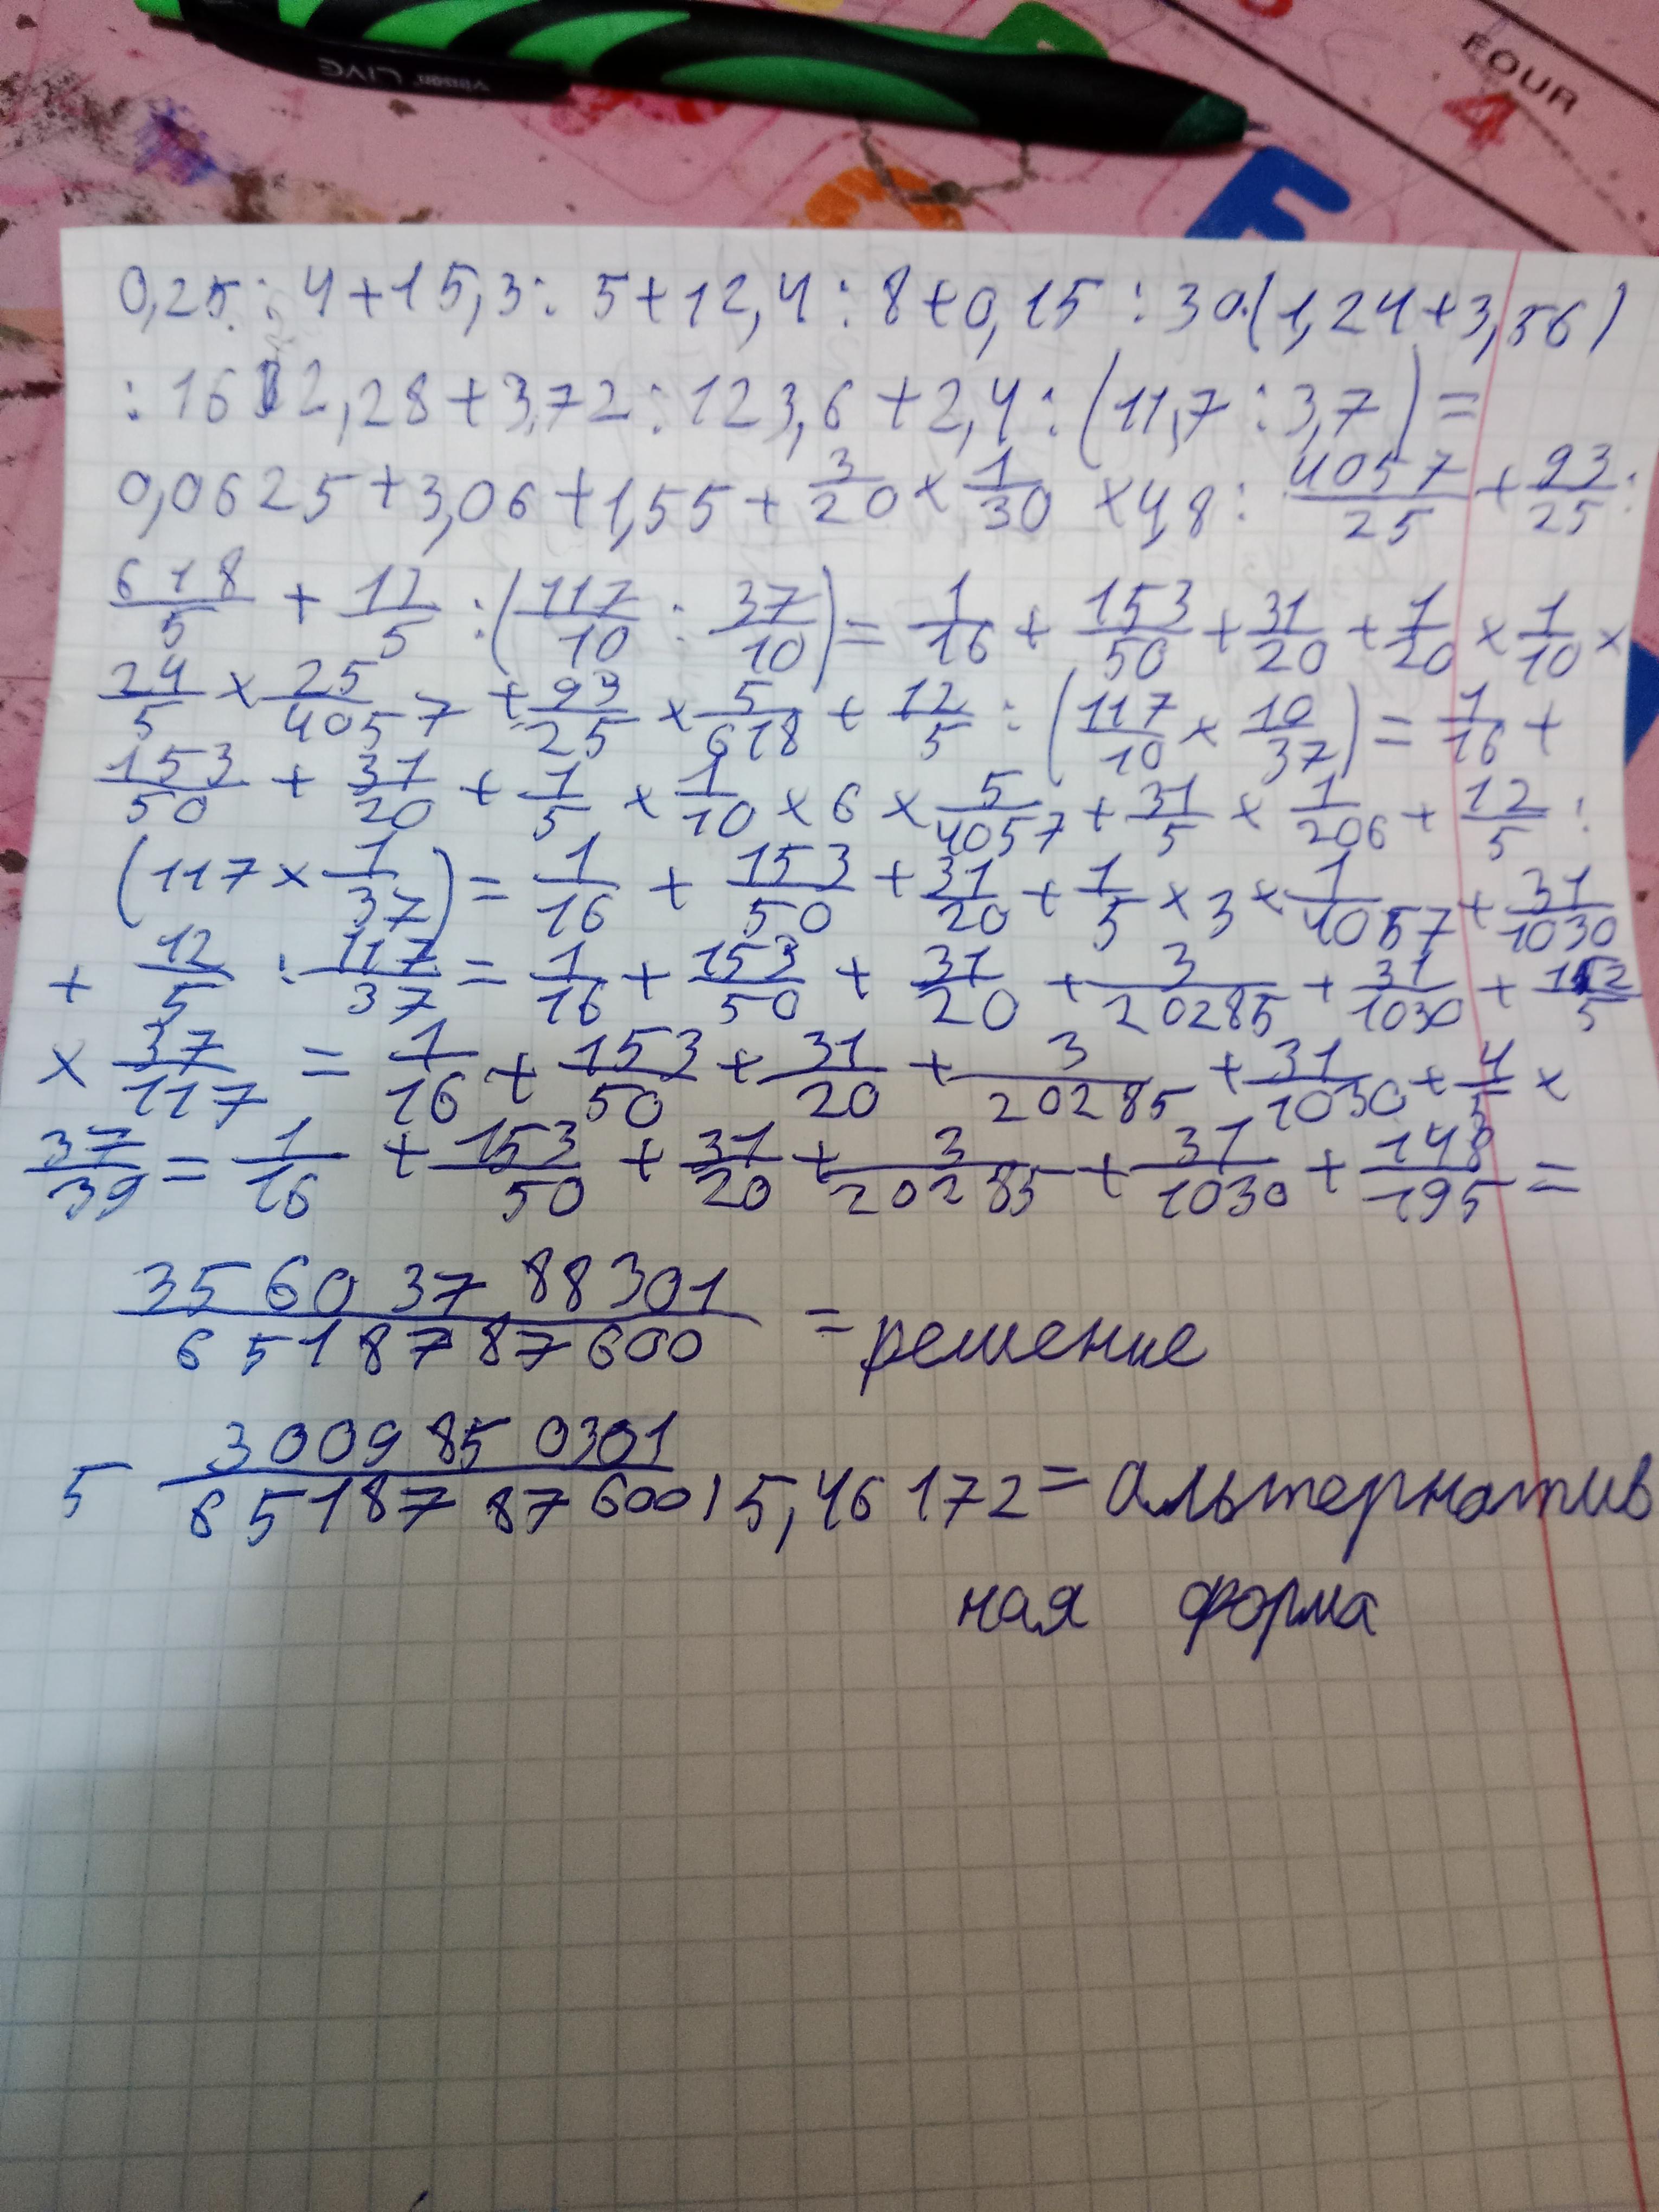 vinson LIVE
FOUR
4
0,25:4+15,3:5+12,4:8+0,15:30·(1,24+3,56)
:1612,28+3,72:123,6+2,4:(11,7:3,7)=
0,0625+3,06+1,55+3/20×1/30×4,8:4057/25+93/25:
618/5+12/5:(117/10:37/10)=1/16+153/50+31/20+1/20×1/10×
24/5×25/4057+93/25×5/618+12/5:(117/10×10/37)=1/16+
153/50+31/20+1/5×1/10×6×5/4057+31/5×1/206+12/5:
(117×1/37)=1/16+153/50+31/20+1/5×3×1/4057+31/1030
+12/5:117/37=1/16+153/50+31/20+3/20285+31/1030+12/5
×37/117=1/16+153/50+31/20+3/20285+31/1030+4/5×
37/39=1/16+153/50+31/20+3/20285+31/1030+148/195=
35603788301/6518787600=решение
5 3009850301/6518787600, 5,46172=альтернатив
ная форма